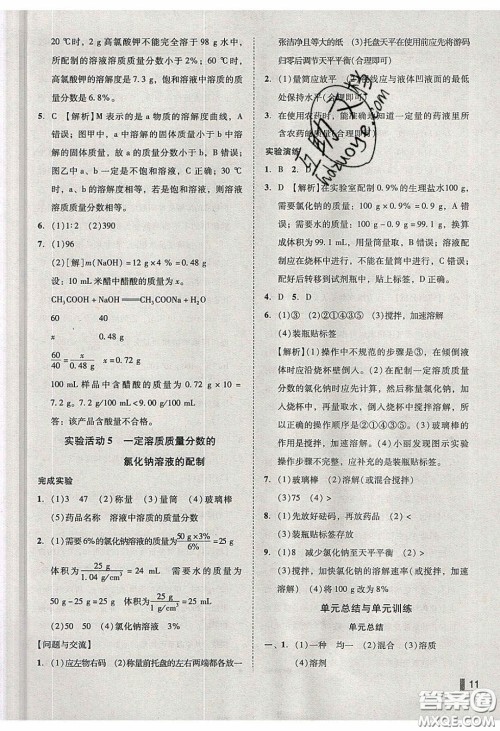 20 ℃时，2 g 高氯酸钾不能完全溶于 98 g 水中，
所配制的溶液溶质质量分数小于 2%；60 ℃时，
高氯酸钾的溶解度是 7.3 g，饱和溶液中溶质质
量分数是 6.8%。
5. C 【解析】M 表示的是 a 物质的溶解度曲线，A
错误；图甲中，a 中溶解的固体质量小于 b 中溶
解的固体质量，B 错误；图丙中，t℃时，a、b 的溶
解度相等，C 正确；图丙中，a、b 溶解的质量不相
等，a、b 的溶解度相等，则溶液的溶质质量不相
等，但是溶质质量分数相等，D 错误。
6. (1)1∶2 (2)390
7. (1)96
(2)[解]m(NaOH)＝12 g×4 %＝0.48 g
设 10 mL 米醋中醋酸的质量为 x
CH₃COOH＋NaOH══CH₃COONa＋H₂O
60 40
x 0.48 g
60/40＝x/0.48 g x＝0.72 g
100 mL 样品中含醋酸的质量为 0.72 g×10＝
7.2 g。7.2 g/100 mL<9.00 g/100 mL
答：该产品含酸量不合格。
实验活动 5 一定溶质质量分数的
氯化钠溶液的配制
完成实验
1. (1)3 47 (2)称量 (3)量筒 (4)玻璃棒
(5)药品名称 溶液中溶质的质量分数
2. (1)需要6%的氯化钠溶液的质量50 g×3%/6%＝25 g
体积为25 g/1.04 g/cm³＝24 mL 需要水的质量＝
50 g－25 g＝25 g 体积为25 g/1 g/cm³＝25 mL
(2)50 50 (3)量取 (4)玻璃棒
【问题与交流】
1. (1)应左物右码 (2)称量前托盘的左右两端都各放一
张洁净且等大的纸 (3)托盘天平在使用前应先将游码
归零后调节天平平衡(合理即可)
2. (1)量筒应放平 (2)视线应与液体凹液面的最低
处保持水平(合理即可)
3. 在使用农药时，能准确知道一定量的药液里所
含农药的质量(合理即可)
实验演练
1. B 2. D
3. D 【解析】在实验室配制 0.9%的生理盐水100 g，
需要氯化钠的质量：100 g×0.9%＝0.9 g；
需要水的质量：100 g－0.9 g＝99.1 g，换算
成体积为 99.1 mL，用量筒量取；溶液配制
应在烧杯中进行，并用玻璃棒搅拌，加速溶
解；配制好后转移到试剂瓶中，贴上标签。
4. B 5. D
6. (1)③ (2)②①④③⑤ (3)搅拌，加速溶解
(4)装瓶贴标签
【解析】(1)操作中不规范的步骤是③，在倾倒液
体时应沿烧杯壁倒入。(2)配制一定溶质质量
分数的氯化钠时应先计算，然后称量氯化钠，加
入烧杯中，再用量筒量取一定体积的水，倒
入烧杯中搅拌溶解，所以顺序为②①④③⑤。
(3)玻璃棒的作用是搅拌，加速溶解。(4)小丽发
现图示实验步骤不完整，应补充的是装瓶贴标签。
7. (1)搅拌，加快溶解 (2)偏小
(3)75 (4)>
8. (1)先放好砝码，再放药品 (2)>
(3)装瓶贴标签存放
9. (1)18 减少氯化钠至天平平衡 (2)量筒 <
(3)搅拌，加快氯化钠的溶解速率(或搅拌，加快
溶解速率)
单元总结与单元训练
单元总结
一、1. (1)一种 均一 (2)混合 (3)溶质
(4)溶剂
11
作业精灵
huazuoye.com
答案圈
MXQE.COM